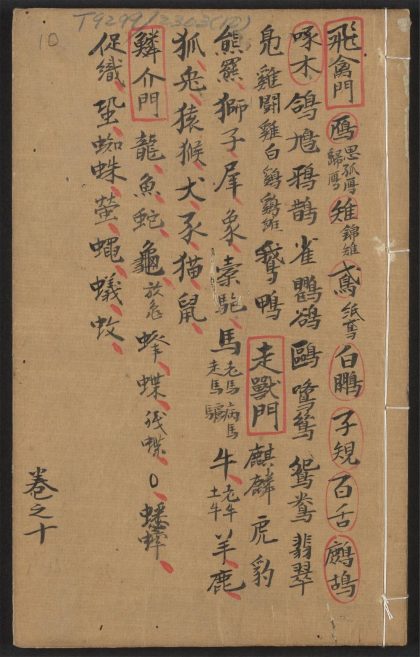 T9299/2303(10)
10
飛禽門 鴈 思孤鴈 歸鴈 雉 錦雉 鳶 紙鳶 白鷴 子規 百舌 鷓鴣
啄木 鴿 鳩 鴉 鵲 雀 鸜鵒 鷗 鷺鷥 鴛鴦 翡翠
鳬 雞 鬪雞 白鷄 鵝 鴨 走獸門 麒麟 虎 豹
熊羆 獅子 犀 象 橐駞 馬 老馬 病馬 走馬 驢 牛 老牛 土牛 羊 鹿
狐 兔 猿猴 犬 豕 猫 鼠
鱗介門 龍 魚 蛇 龜 放龜 蜂 蝶 蟋蟀
促織 蛩 蜘蛛 螢 蠅 蟻 蚊
卷之十